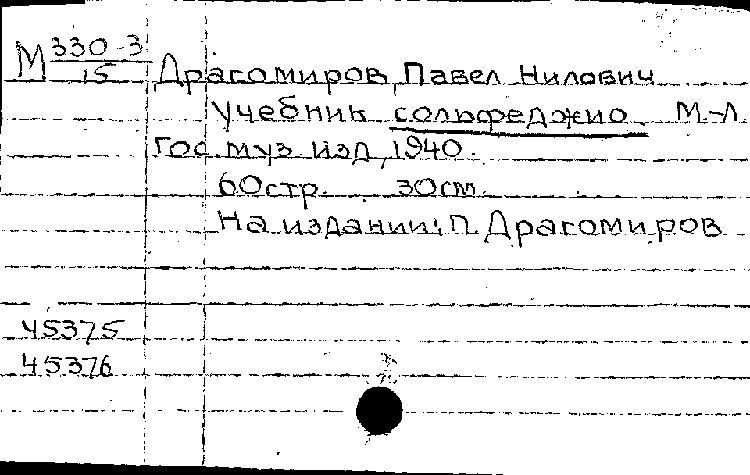 М 330-3
15
Драгомиров, Павел Нилович
Учебник сольфеджио. М-Л.
Гос. муз. изд, 1940.
60стр. 30см.
На издании: П. Драгомиров
45375
45376